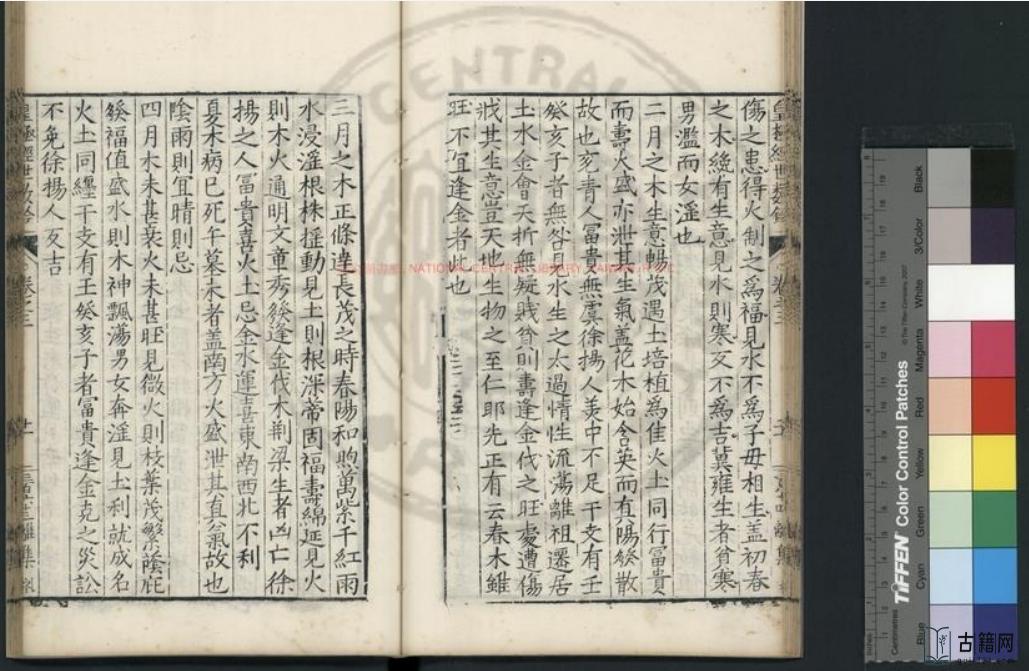 傷之患得火制之為福見水不為子母相生盖初春
之木纔有生意見水則寒又不為吉冀雍生者貧寒
男濫而女淫也
二月之木生意暢茂遇土培植為佳火土同行富貴
而壽火盛亦泄其生氣盖花木始含英而有陽發散
故也兖青人富貴無虞徐揚人美中不足干支有壬
癸亥子者無咎見水生之太過情性流蕩離祖遷居
土水金會夭折無疑賤貧則壽逢金伐之旺處遭傷
戕其生意豈天地生物之至仁耶先正有云春木雖
旺不宜逢金者此也
三月之木正條達長茂之時春陽和煦萬紫千紅雨
水浸淫根株摇動見土則根深蒂固福壽綿延見火
則木火通明文章秀發逢金伐木荆梁生者凶亡徐
揚之人富貴喜火土忌金水運喜東南西北不利
夏木病巳死午墓未者盖南方火盛泄其真氣故也
陰雨則宜晴則忌
四月木未甚衰火未甚旺見微火則枝葉茂繁蔭庇
發福值盛水則木神飄蕩男女奔淫見土利就成名
火土同纏干支有壬癸亥子者富貴逢金克之災訟
不免徐揚人反吉
卷之三
NATIONAL CENTRAL LIBRARY
Black
3/Color
White
Magenta
Red
Yellow
Green
Cyan
Blue
TIFFEN Color Control Patches
© The Tiffen Company, 2007
Centimetres
Inches
古籍网